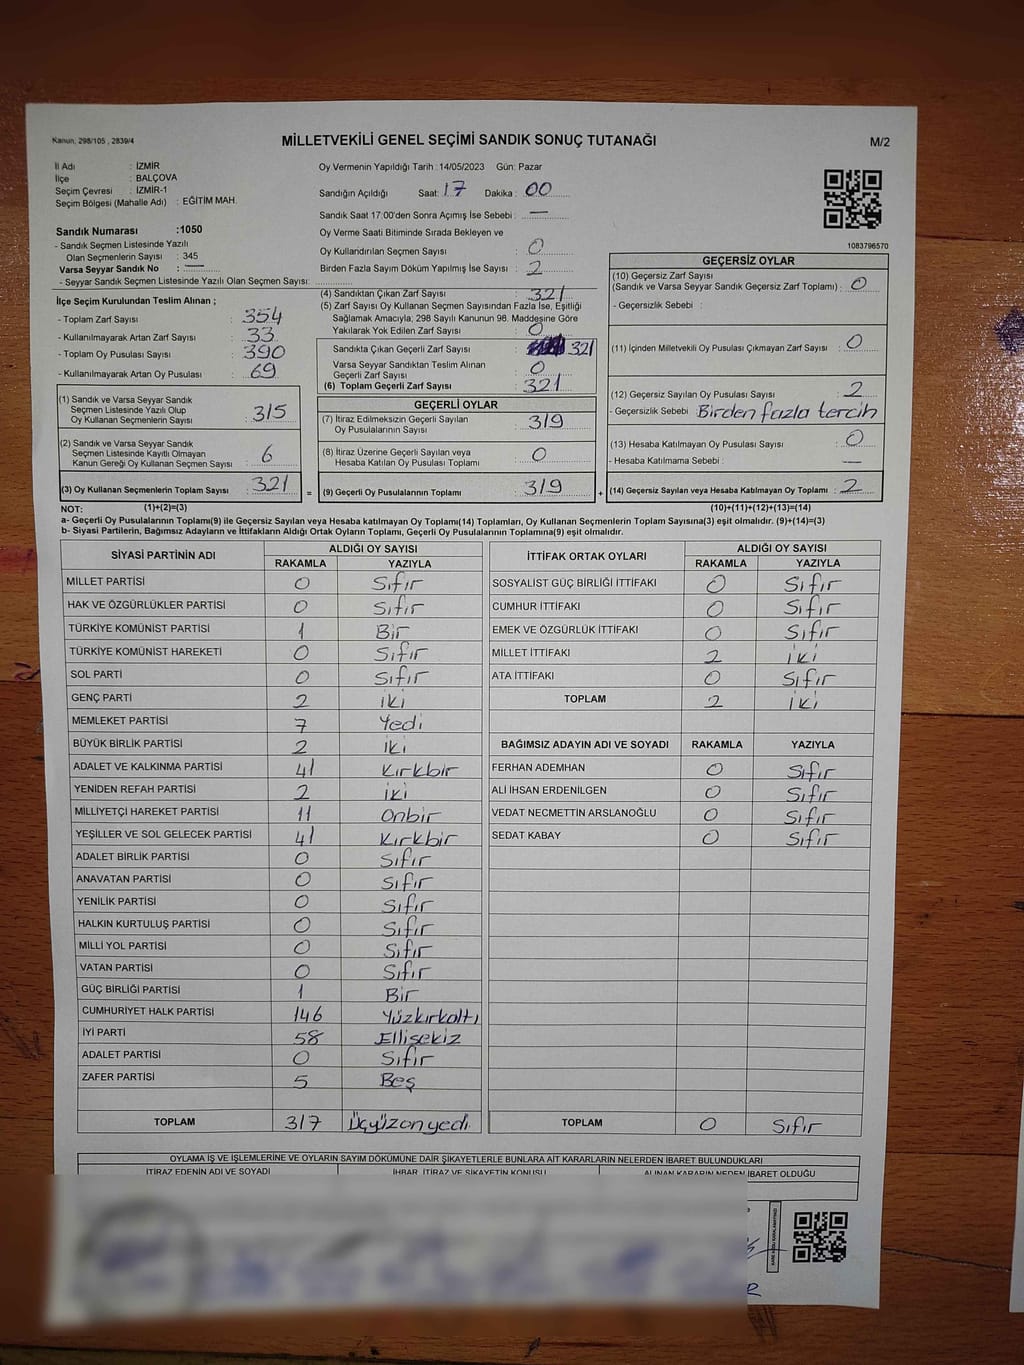 Kanun, 298/105 , 2839/4
MİLLETVEKİLİ GENEL SEÇİMİ SANDIK SONUÇ TUTANAĞI
M/2
İl Adı : İZMİR
İlçe : BALÇOVA
Seçim Çevresi : İZMİR-1
Seçim Bölgesi (Mahalle Adı) : EĞİTİM MAH.
Oy Vermenin Yapıldığı Tarih : 14/05/2023 Gün: Pazar
Sandığın Açıldığı Saat: 17 Dakika : 00
Sandık Saat 17:00'den Sonra Açımış İse Sebebi : —
Oy Verme Saati Bitiminde Sırada Bekleyen ve
Oy Kullandırılan Seçmen Sayısı : 0
Birden Fazla Sayım Döküm Yapılmış İse Sayısı : 2
1083796570
Sandık Numarası :1050
- Sandık Seçmen Listesinde Yazılı
Olan Seçmenlerin Sayısı : 345
Varsa Seyyar Sandık No : —
- Seyyar Sandık Seçmen Listesinde Yazılı Olan Seçmen Sayısı:
İlçe Seçim Kurulundan Teslim Alınan ;
- Toplam Zarf Sayısı : 354
- Kullanılmayarak Artan Zarf Sayısı : 33
- Toplam Oy Pusulası Sayısı : 390
- Kullanılmayarak Artan Oy Pusulası : 69
(1) Sandık ve Varsa Seyyar Sandık
Seçmen Listesinde Yazılı Olup
Oy Kullanan Seçmenlerin Sayısı : 315
(2) Sandık ve Varsa Seyyar Sandık
Seçmen Listesinde Kayıtlı Olmayan
Kanun Gereği Oy Kullanan Seçmen Sayısı : 6
(3) Oy Kullanan Seçmenlerin Toplam Sayısı : 321
(4) Sandıktan Çıkan Zarf Sayısı : 321
(5) Zarf Sayısı Oy Kullanan Seçmen Sayısından Fazla İse, Eşitliği
Sağlamak Amacıyla; 298 Sayılı Kanunun 98. Maddesine Göre
Yakılarak Yok Edilen Zarf Sayısı : 0
Sandıkta Çıkan Geçerli Zarf Sayısı : 321
Varsa Seyyar Sandıktan Teslim Alınan
Geçerli Zarf Sayısı : 0
(6) Toplam Geçerli Zarf Sayısı : 321
GEÇERLİ OYLAR
(7) İtiraz Edilmeksizin Geçerli Sayılan
Oy Pusulalarının Sayısı : 319
(8) İtiraz Üzerine Geçerli Sayılan veya
Hesaba Katılan Oy Pusulası Toplamı : 0
= (9) Geçerli Oy Pusulalarının Toplamı : 319 +
GEÇERSİZ OYLAR
(10) Geçersiz Zarf Sayısı
(Sandık ve Varsa Seyyar Sandık Geçersiz Zarf Toplamı) : 0
- Geçersizlik Sebebi :
(11) İçinden Milletvekili Oy Pusulası Çıkmayan Zarf Sayısı : 0
(12) Geçersiz Sayılan Oy Pusulası Sayısı : 2
- Geçersizlik Sebebi : Birden fazla tercih
(13) Hesaba Katılmayan Oy Pusulası Sayısı : 0
- Hesaba Katılmama Sebebi : —
(14) Geçersiz Sayılan veya Hesaba Katılmayan Oy Toplamı : 2
NOT: (1)+(2)=(3) (10)+(11)+(12)+(13)=(14)
a- Geçerli Oy Pusulalarının Toplamı(9) ile Geçersiz Sayılan veya Hesaba katılmayan Oy Toplamı(14) Toplamları, Oy Kullanan Seçmenlerin Toplam Sayısına(3) eşit olmalıdır. (9)+(14)=(3)
b- Siyasi Partilerin, Bağımsız Adayların ve İttifakların Aldığı Ortak Oyların Toplamı, Geçerli Oy Pusulalarının Toplamına(9) eşit olmalıdır.
SİYASİ PARTİNİN ADI ALDIĞI OY SAYISI
RAKAMLA YAZIYLA
MİLLET PARTİSİ 0 Sıfır
HAK VE ÖZGÜRLÜKLER PARTİSİ 0 Sıfır
TÜRKİYE KOMÜNİST PARTİSİ 1 Bir
TÜRKİYE KOMÜNİST HAREKETİ 0 Sıfır
SOL PARTİ 0 Sıfır
GENÇ PARTİ 2 iki
MEMLEKET PARTİSİ 7 Yedi
BÜYÜK BİRLİK PARTİSİ 2 iki
ADALET VE KALKINMA PARTİSİ 41 Kırkbir
YENİDEN REFAH PARTİSİ 2 iki
MİLLİYETÇİ HAREKET PARTİSİ 11 Onbir
YEŞİLLER VE SOL GELECEK PARTİSİ 41 Kırkbir
ADALET BİRLİK PARTİSİ 0 Sıfır
ANAVATAN PARTİSİ 0 Sıfır
YENİLİK PARTİSİ 0 Sıfır
HALKIN KURTULUŞ PARTİSİ 0 Sıfır
MİLLİ YOL PARTİSİ 0 Sıfır
VATAN PARTİSİ 0 Sıfır
GÜÇ BİRLİĞİ PARTİSİ 1 Bir
CUMHURİYET HALK PARTİSİ 146 Yüzkırkaltı
İYİ PARTİ 58 Ellisekiz
ADALET PARTİSİ 0 Sıfır
ZAFER PARTİSİ 5 Beş
TOPLAM 317 Üçyüzonyedi
İTTİFAK ORTAK OYLARI ALDIĞI OY SAYISI
RAKAMLA YAZIYLA
SOSYALİST GÜÇ BİRLİĞİ İTTİFAKI 0 Sıfır
CUMHUR İTTİFAKI 0 Sıfır
EMEK VE ÖZGÜRLÜK İTTİFAKI 0 Sıfır
MİLLET İTTİFAKI 2 iki
ATA İTTİFAKI 0 Sıfır
TOPLAM 2 iki
BAĞIMSIZ ADAYIN ADI VE SOYADI RAKAMLA YAZIYLA
FERHAN ADEMHAN 0 Sıfır
ALİ İHSAN ERDENİLGEN 0 Sıfır
VEDAT NECMETTİN ARSLANOĞLU 0 Sıfır
SEDAT KABAY 0 Sıfır
TOPLAM 0 Sıfır
OYLAMA İŞ VE İŞLEMLERİNE VE OYLARIN SAYIM DÖKÜMÜNE DAİR ŞİKAYETLERLE BUNLARA AİT KARARLARIN NELERDEN İBARET BULUNDUKLARI
İTİRAZ EDENİN ADI VE SOYADI İHBAR, İTİRAZ VE ŞİKAYETİN KONUSU ALINAN KARARIN NEDEN İBARET OLDUĞU